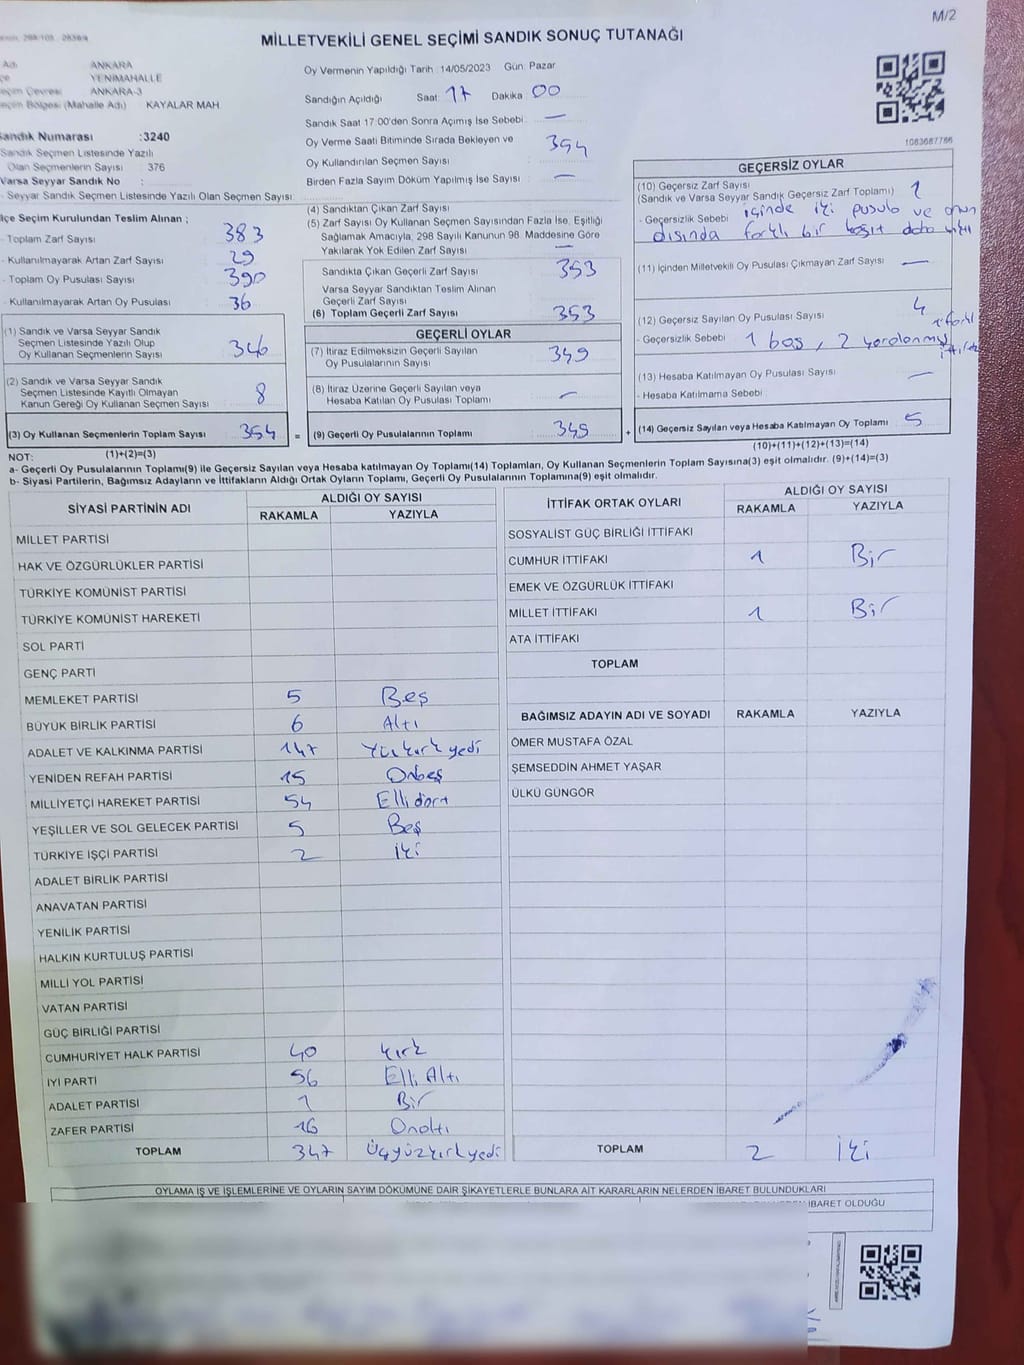 M/2
MİLLETVEKİLİ GENEL SEÇİMİ SANDIK SONUÇ TUTANAĞI
Adı ANKARA
YENİMAHALLE
Seçim Çevresi ANKARA-3
Seçim Bölgesi (Mahalle Adı) KAYALAR MAH
Sandık Numarası :3240
Sandık Seçmen Listesinde Yazılı
Olan Seçmenlerin Sayısı 376
Varsa Seyyar Sandık No :
- Seyyar Sandık Seçmen Listesinde Yazılı Olan Seçmen Sayısı
Oy Vermenin Yapıldığı Tarih :14/05/2023 Gün: Pazar
Sandığın Açıldığı Saat: 17 Dakika 00
Sandık Saat 17:00'den Sonra Açımış İse Sebebi —
Oy Verme Saati Bitiminde Sırada Bekleyen ve
Oy Kullandırılan Seçmen Sayısı 354
Birden Fazla Sayım Döküm Yapılmış İse Sayısı —
1083687786
İlçe Seçim Kurulundan Teslim Alınan ;
- Toplam Zarf Sayısı 383
- Kullanılmayarak Artan Zarf Sayısı 29
- Toplam Oy Pusulası Sayısı 390
- Kullanılmayarak Artan Oy Pusulası 36
(1) Sandık ve Varsa Seyyar Sandık
Seçmen Listesinde Yazılı Olup
Oy Kullanan Seçmenlerin Sayısı 346
(2) Sandık ve Varsa Seyyar Sandık
Seçmen Listesinde Kayıtlı Olmayan
Kanun Gereği Oy Kullanan Seçmen Sayısı 8
(3) Oy Kullanan Seçmenlerin Toplam Sayısı 354 =
(1)+(2)=(3)
(4) Sandıktan Çıkan Zarf Sayısı
(5) Zarf Sayısı Oy Kullanan Seçmen Sayısından Fazla İse, Eşitliği
Sağlamak Amacıyla, 298 Sayılı Kanunun 98. Maddesine Göre
Yakılarak Yok Edilen Zarf Sayısı —
Sandıkta Çıkan Geçerli Zarf Sayısı 353
Varsa Seyyar Sandıktan Teslim Alınan
Geçerli Zarf Sayısı
(6) Toplam Geçerli Zarf Sayısı 353
GEÇERLİ OYLAR
(7) İtiraz Edilmeksizin Geçerli Sayılan
Oy Pusulalarının Sayısı 349
(8) İtiraz Üzerine Geçerli Sayılan veya
Hesaba Katılan Oy Pusulası Toplamı —
(9) Geçerli Oy Pusulalarının Toplamı 349 +
GEÇERSİZ OYLAR
(10) Geçersiz Zarf Sayısı 1
(Sandık ve Varsa Seyyar Sandık Geçersiz Zarf Toplamı)
- Geçersizlik Sebebi içinde iki pusula ve onun
dışında farklı bir kağıt daha
(11) İçinden Milletvekili Oy Pusulası Çıkmayan Zarf Sayısı —
(12) Geçersiz Sayılan Oy Pusulası Sayısı 4
- Geçersizlik Sebebi 1 boş, 2
(13) Hesaba Katılmayan Oy Pusulası Sayısı —
- Hesaba Katılmama Sebebi
(14) Geçersiz Sayılan veya Hesaba Katılmayan Oy Toplamı 5
(10)+(11)+(12)+(13)=(14)
NOT:
a- Geçerli Oy Pusulalarının Toplamı(9) ile Geçersiz Sayılan veya Hesaba katılmayan Oy Toplamı(14) Toplamları, Oy Kullanan Seçmenlerin Toplam Sayısına(3) eşit olmalıdır. (9)+(14)=(3)
b- Siyasi Partilerin, Bağımsız Adayların ve İttifakların Aldığı Ortak Oyların Toplamı, Geçerli Oy Pusulalarının Toplamına(9) eşit olmalıdır.
SİYASİ PARTİNİN ADI ALDIĞI OY SAYISI
RAKAMLA YAZIYLA
MİLLET PARTİSİ
HAK VE ÖZGÜRLÜKLER PARTİSİ
TÜRKİYE KOMÜNİST PARTİSİ
TÜRKİYE KOMÜNİST HAREKETİ
SOL PARTİ
GENÇ PARTİ
MEMLEKET PARTİSİ 5 Beş
BÜYÜK BİRLİK PARTİSİ 6 Altı
ADALET VE KALKINMA PARTİSİ 147 Yüzkırkyedi
YENİDEN REFAH PARTİSİ 15 Onbeş
MİLLİYETÇİ HAREKET PARTİSİ 54 Ellidört
YEŞİLLER VE SOL GELECEK PARTİSİ 5 Beş
TÜRKİYE İŞÇİ PARTİSİ 2 İki
ADALET BİRLİK PARTİSİ
ANAVATAN PARTİSİ
YENİLİK PARTİSİ
HALKIN KURTULUŞ PARTİSİ
MİLLİ YOL PARTİSİ
VATAN PARTİSİ
GÜÇ BİRLİĞİ PARTİSİ
CUMHURİYET HALK PARTİSİ 40 kırk
İYİ PARTİ 56 Elli Altı
ADALET PARTİSİ 1 Bir
ZAFER PARTİSİ 16 Onaltı
TOPLAM 347 Üçyüzkırkyedi
İTTİFAK ORTAK OYLARI ALDIĞI OY SAYISI
RAKAMLA YAZIYLA
SOSYALİST GÜÇ BİRLİĞİ İTTİFAKI
CUMHUR İTTİFAKI 1 Bir
EMEK VE ÖZGÜRLÜK İTTİFAKI
MİLLET İTTİFAKI 1 Bir
ATA İTTİFAKI
TOPLAM
BAĞIMSIZ ADAYIN ADI VE SOYADI RAKAMLA YAZIYLA
ÖMER MUSTAFA ÖZAL
ŞEMSEDDİN AHMET YAŞAR
ÜLKÜ GÜNGÖR
TOPLAM 2 İki
OYLAMA İŞ VE İŞLEMLERİNE VE OYLARIN SAYIM DÖKÜMÜNE DAİR ŞİKAYETLERLE BUNLARA AİT KARARLARIN NELERDEN İBARET BULUNDUKLARI
İBARET OLDUĞU